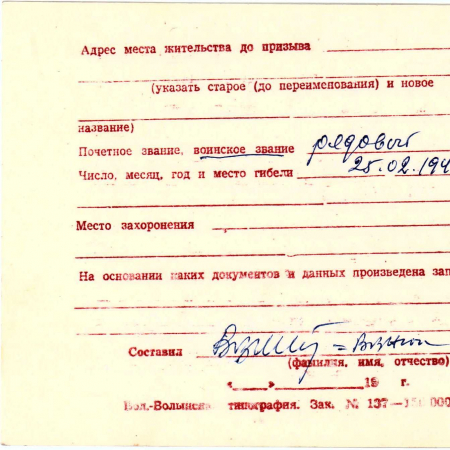 Адрес места жительства до призыва
(указать старое (до переименования) и новое
название)
Почетное звание, воинское звание рядовой
Число, месяц, год и место гибели 25.02.194
Место захоронения
На основании каких документов и данных произведена зап
Составил
(фамилия, имя, отчество)
« » 19 г.
типография. Зак. № 137—